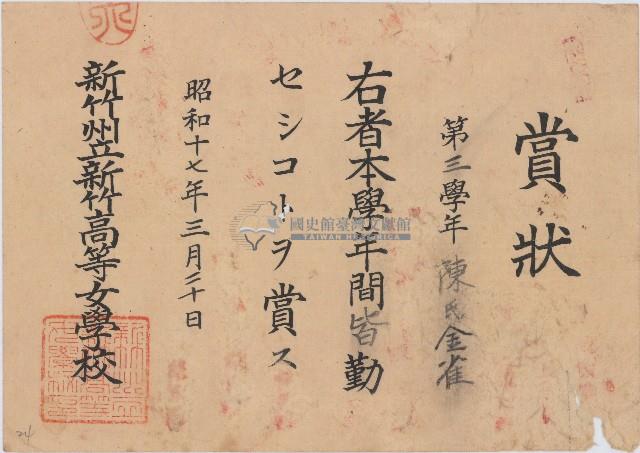 賞狀
第三學年 陳氏金雀
右者本學年間皆勤
セシコトヲ賞ス
昭和十七年三月二十日
新竹州立新竹高等女學校
國史館臺灣文獻館
TAIWAN HISTORICA
24